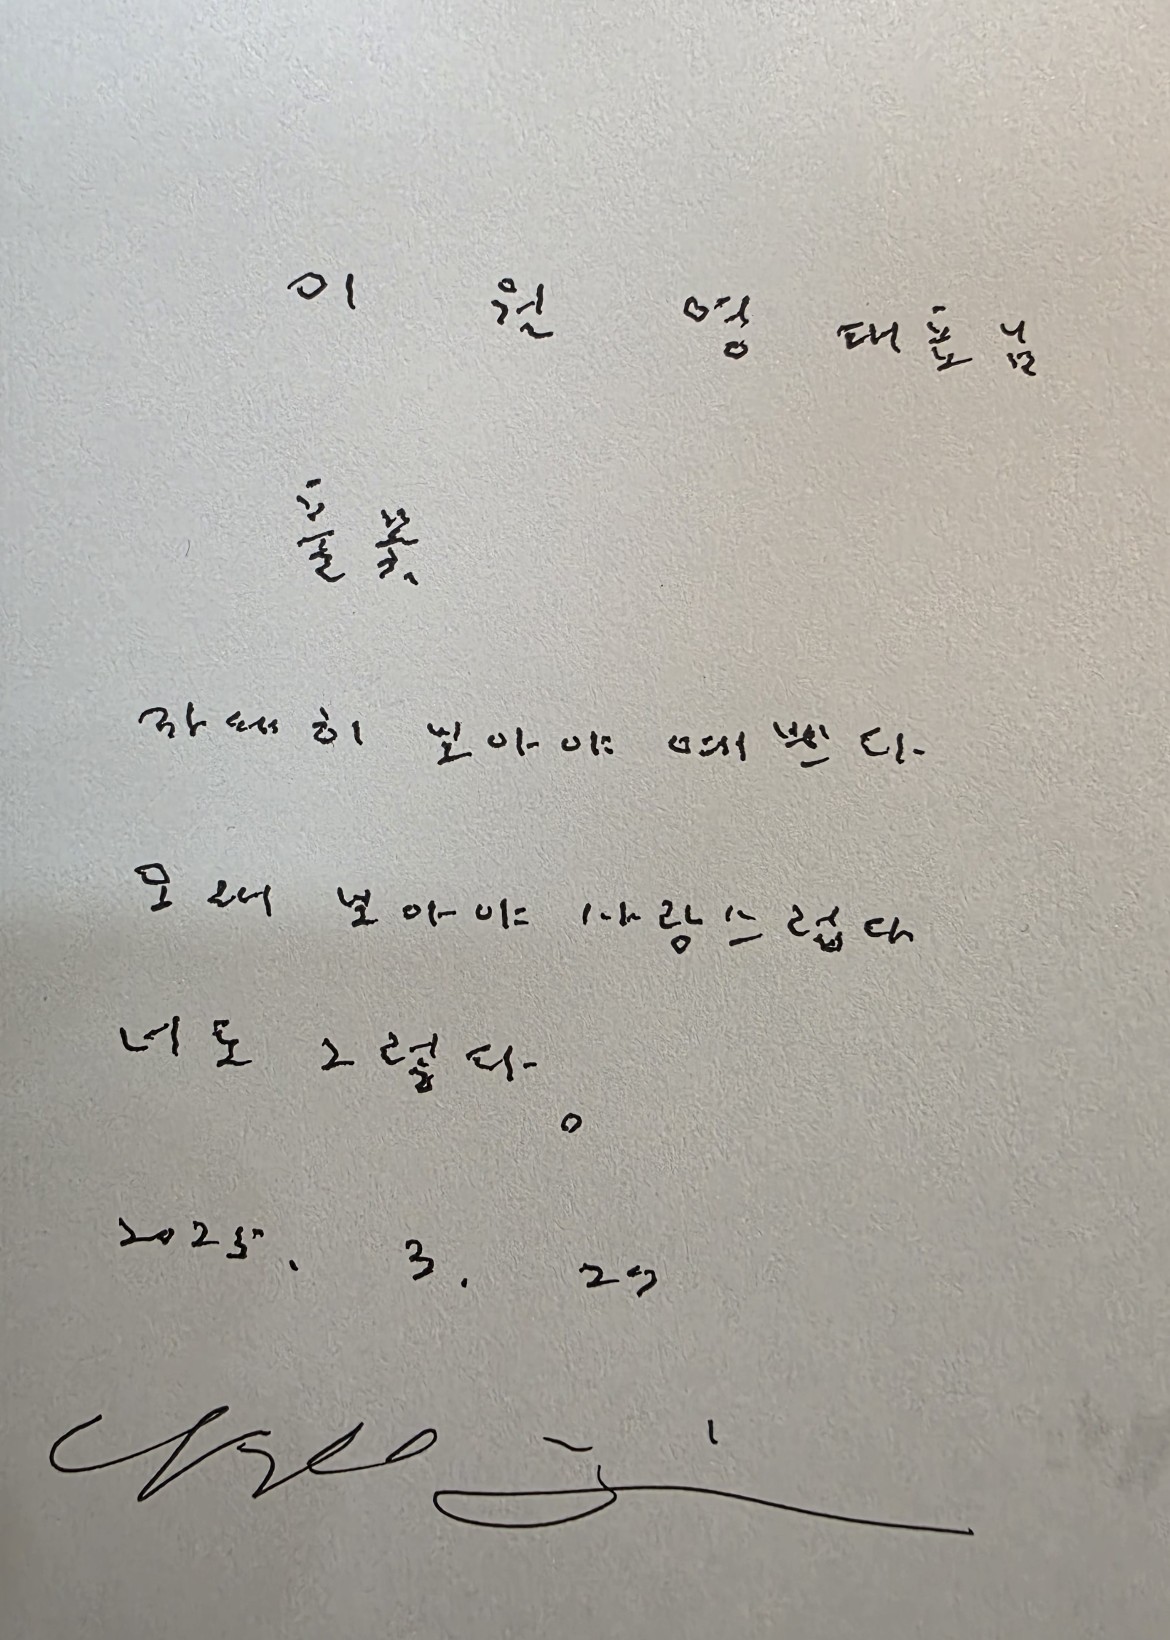 이 원 영 대표님
풀꽃,
자세히 보아야 예쁘다
오래 보아야 사랑스럽다
너도 그렇다.
2025. 3. 29